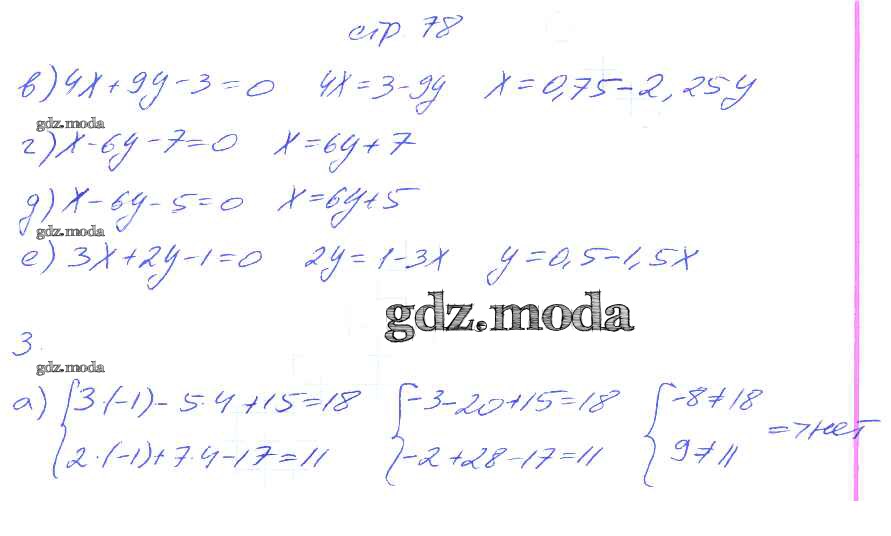 стр 78
в) 4x+9y-3=0 4x=3-9y x=0,75-2,25y
gdz.moda
г) x-6y-7=0 x=6y+7
д) x-6y-5=0 x=6y+5
gdz.moda
е) 3x+2y-1=0 2y=1-3x y=0,5-1,5x
gdz.moda
3.
gdz.moda
а) {3·(-1)-5·4+15=18 {-3-20+15=18 {-8≠18
2·(-1)+7·4-17=11 -2+28-17=11 9≠11 =>нет